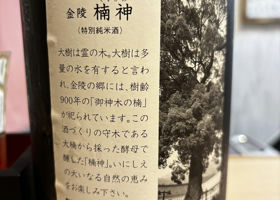 金陵 楠神
(特別純米酒)
大樹は霊の木。大樹は多
量の水を有すると言わ
れ、金陵の郷には、樹齢
900年の「御神木の楠」
が祀られています。この
酒づくりの守木である
大楠から採った酵母で
醸した「楠神」。いにしえ
の大いなる自然の恵み
をお楽しみ下さい。